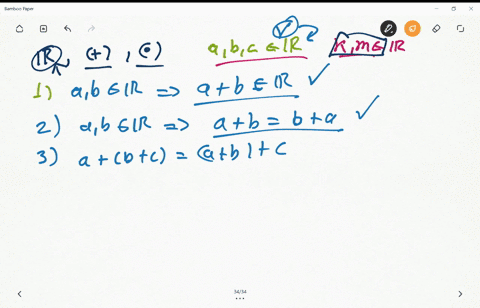 Bamboo Paper
ℝ, (+), (•) a,b,c ∈ ℝ k,m ∈ ℝ
1) a,b ∈ ℝ ⇒ a+b ∈ ℝ ✓
2) a,b ∈ ℝ ⇒ a+b = b+a ✓
3) a+(b+c) = (a+b)+c
34/34